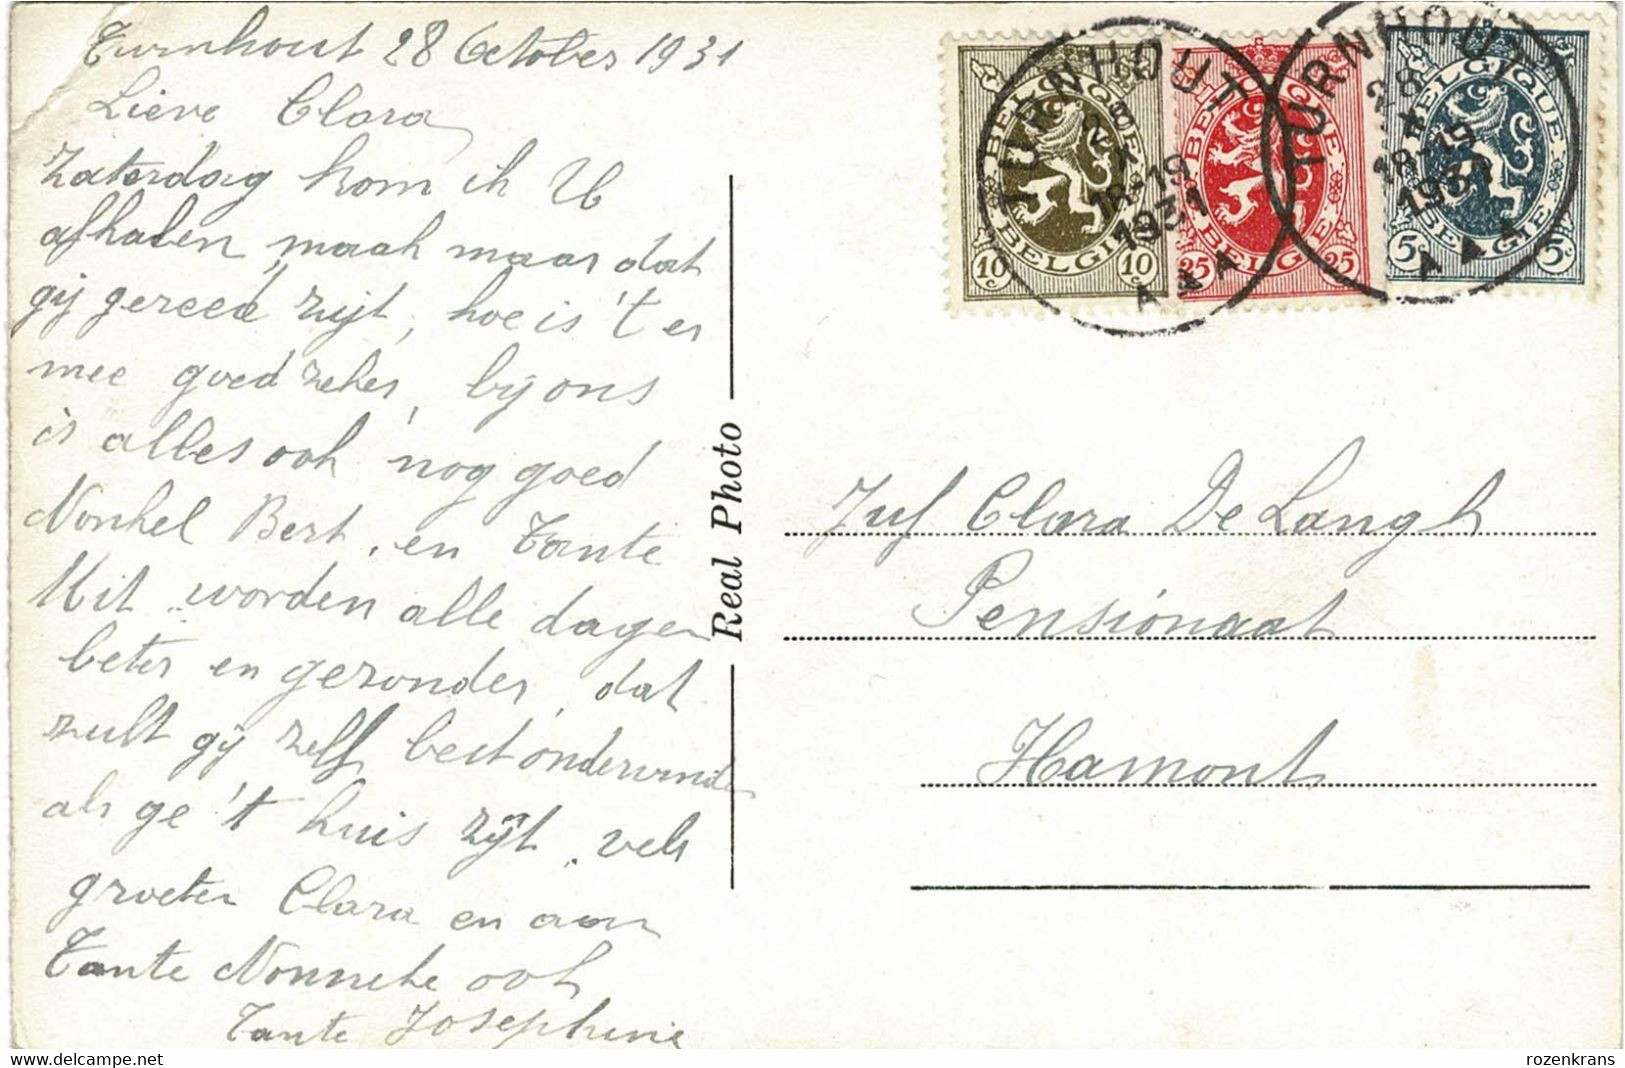 Turnhout 28 October 1931
Lieve Clara
Zaterdag kom ik U
afhalen, maak maar dat
gij gereed zijt, hoe is 't er
mee goed zeker, bij ons
is alles ook nog goed
Nonkel Bert, en Tante
Mit worden alle dagen
beter en gezonder, dat
zult gij zelf best ondervinden
als ge 't huis zijt, vele
groeten Clara en aan
Tante Nonneke ook
Tante Josephine
Real Photo
TURNHOUT
28
X
18-19
1931
A A A
TURNHOUT
28
X
18-19
1931
A A A
BELGIQUE
BELGIE
10c 10c
BELGIQUE
BELGIE
25 25
BELGIQUE
BELGIE
5c 5c
Juf Clara De Langh
Pensionaat
Hamont
www.delcampe.net
rozenkrans